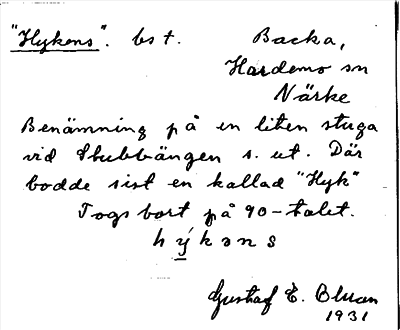 "Hykens". bst. Backa,
Hardemo sn
Närke
Benämning på en liten stuga
vid Stubbängen s. ut. Där
bodde sist en kallad "Hyk"
Togs bort på 90-talet.
hýkəns
Gustaf E. Bluan
1931